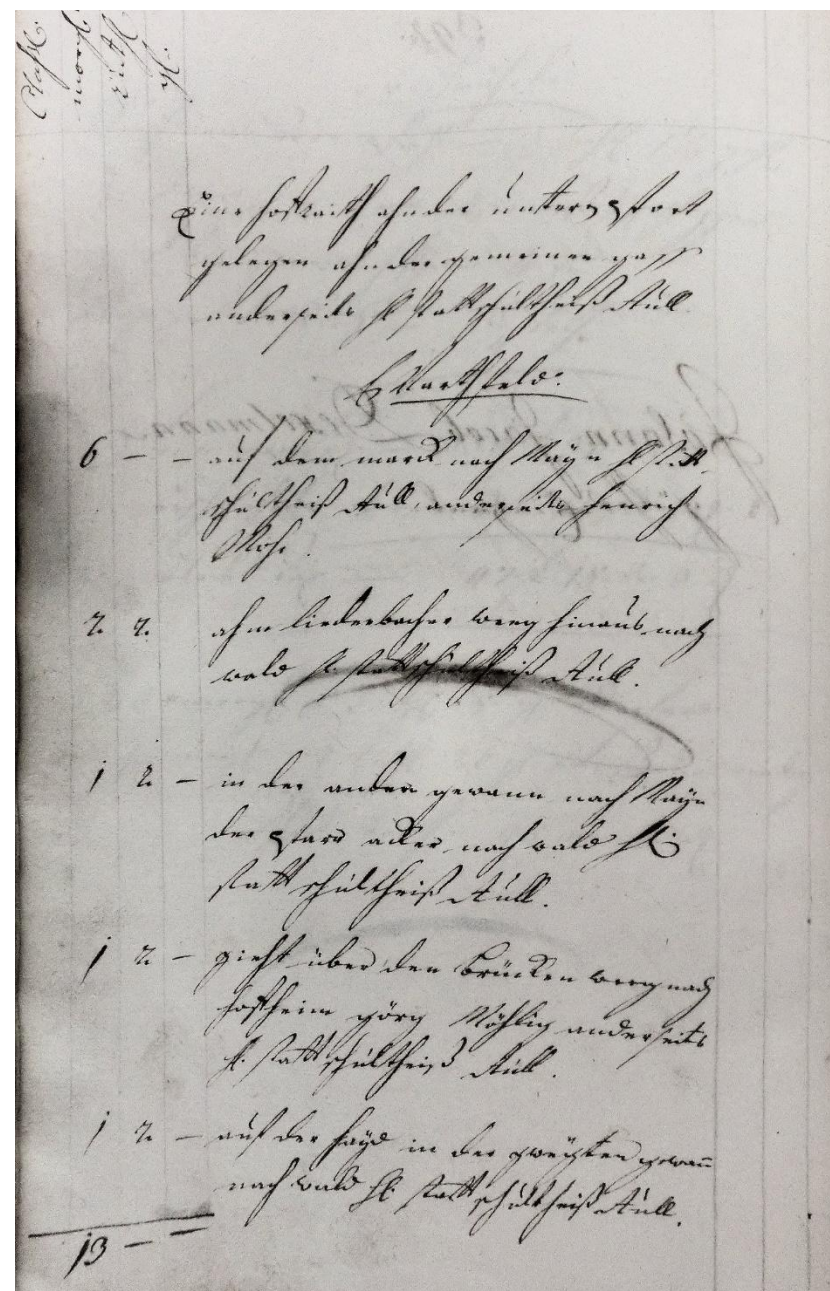 Class.
morg.
Eine hoffraith ahn der unterpfort
gelegen ahn der gemeinen gass
anderseits H. statt schultheiß Aull.
Marckfeld:
6 - - auf dem marck nach Mayn H. statt
schultheiß Aull, anderseits henrich
Mohr.
2. 2. ahm liederbacher weeg hinaus nach
wald H. statt schultheiß Aull.
1 2 - in der andern gewann nach Mayn
der pfarr acker nach wald H.
statt schultheiß Aull.
1 2 - zieht über den brücken weeg nach
hoffheim görg Möhlig anderseits
H. statt schultheiß Aull.
1 2 - auf der hayd in der zweyten gewan̄
nach wald H. statt schultheiß Aull.
13 - -